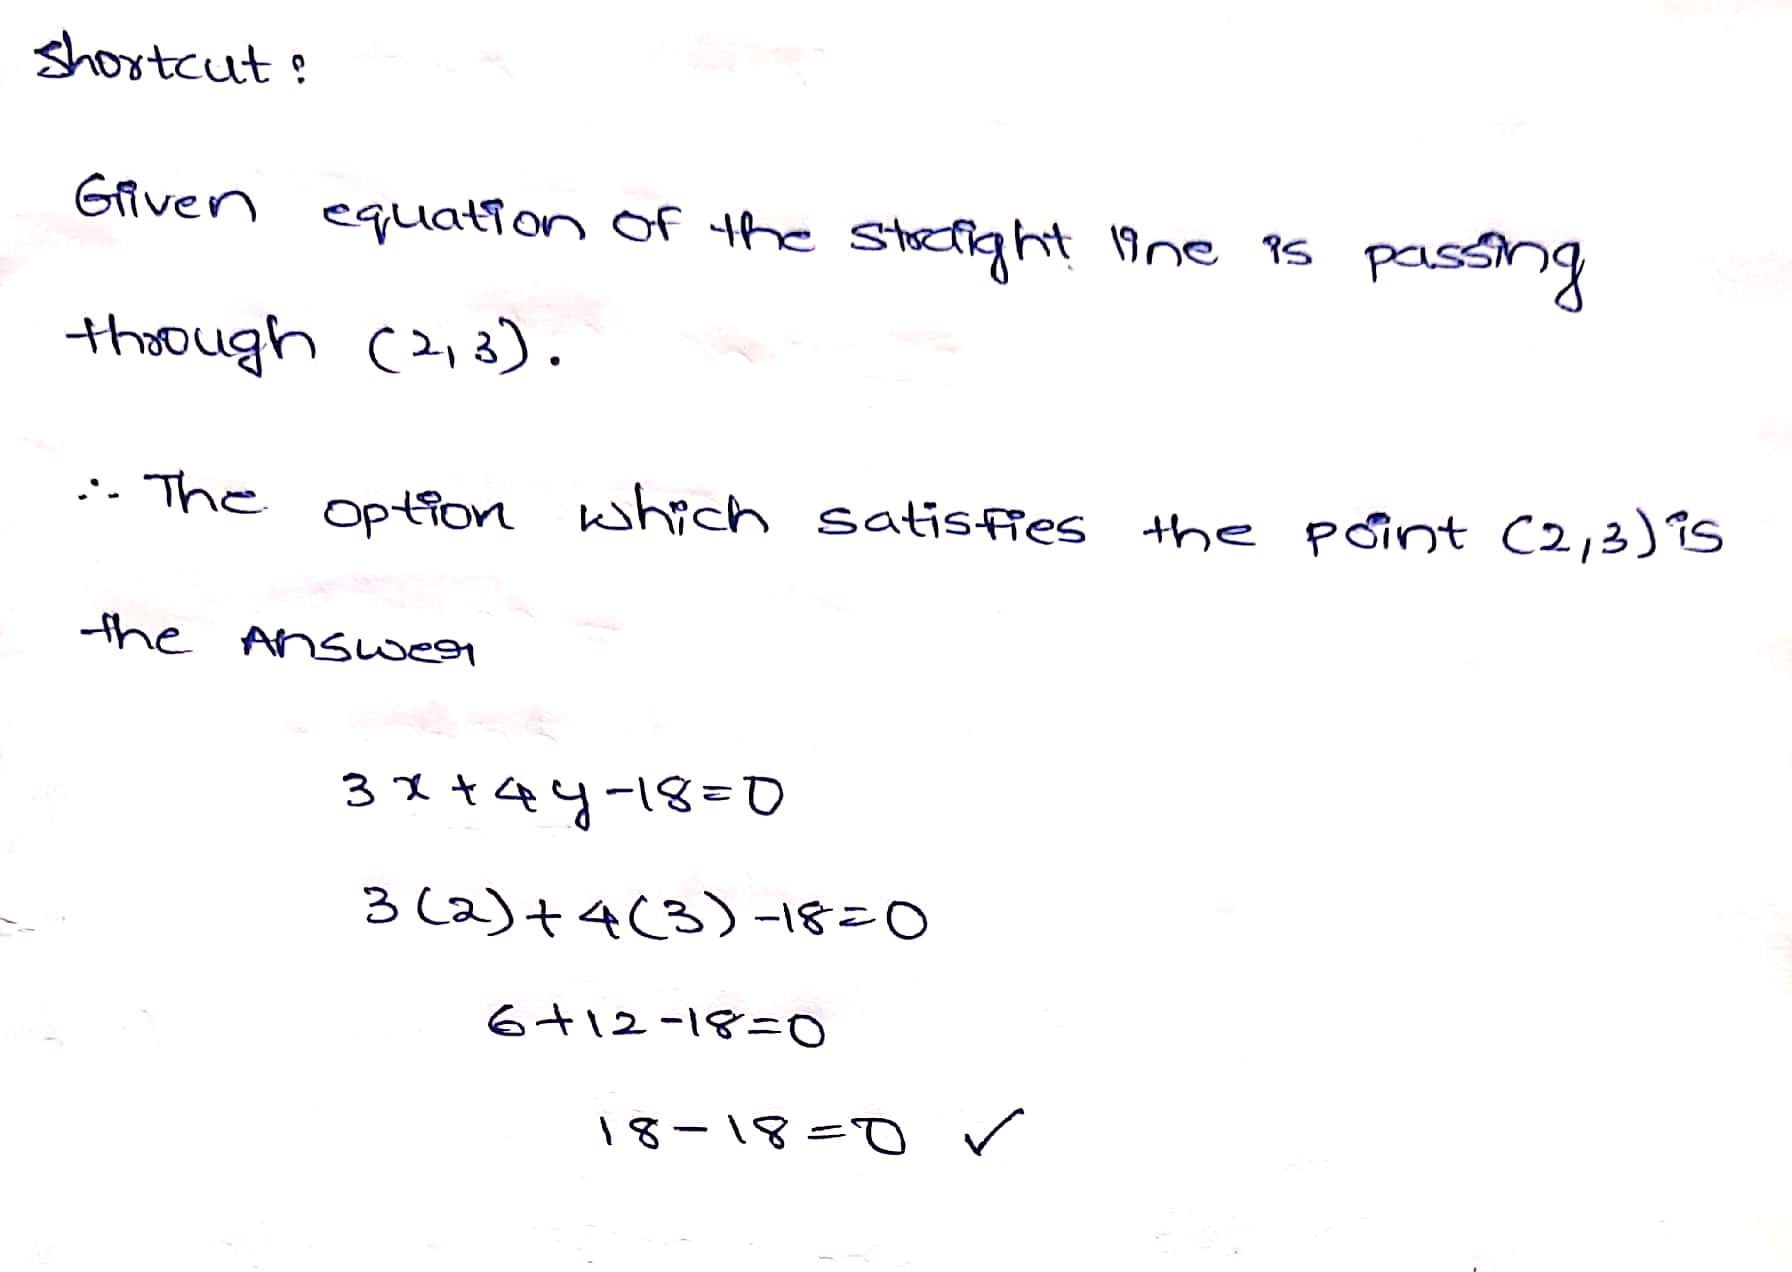 Shortcut :
Given equation of the straight line is passing
through (2,3).
∴ The option which satisfies the point (2,3) is
the Answer
3x+4y-18=0
3(2)+4(3)-18=0
6+12-18=0
18-18=0 ✓